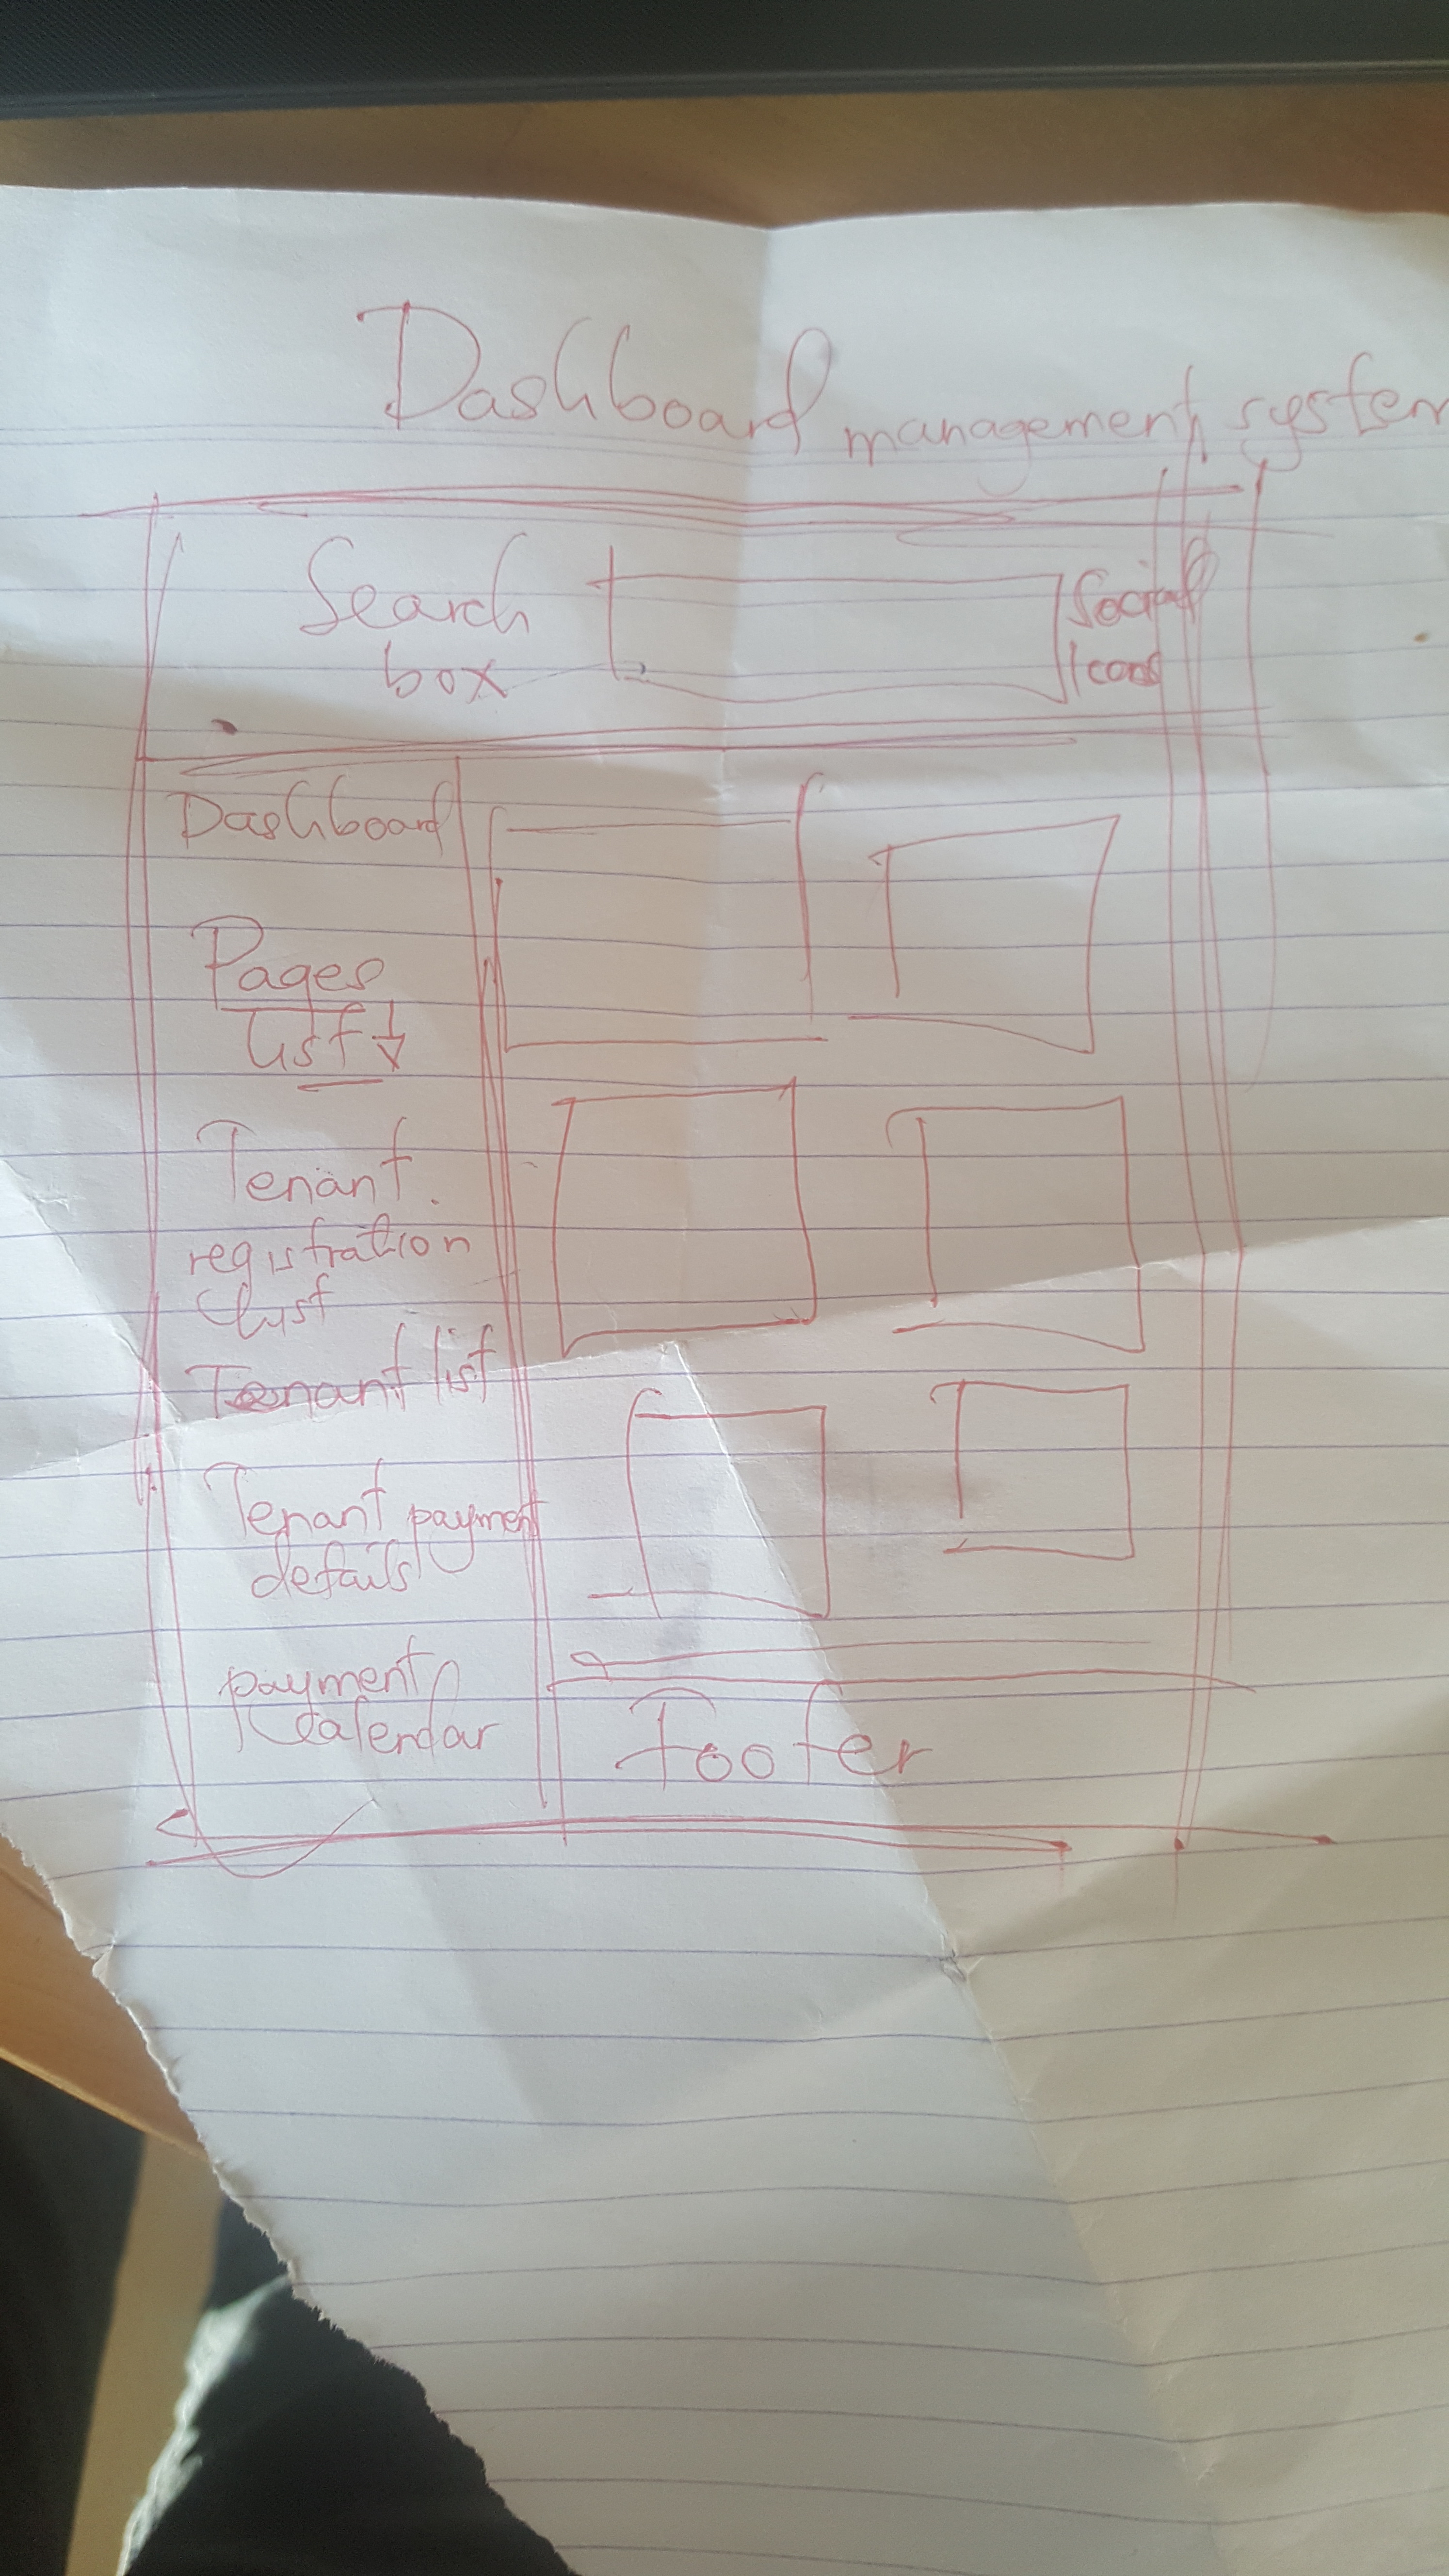 Dashboard management system
Search
box
Social
Icons
Dashboard
Pages
list
Tenant
registration
list
Tenant list
Tenant payment
details
payment
Calendar
Footer